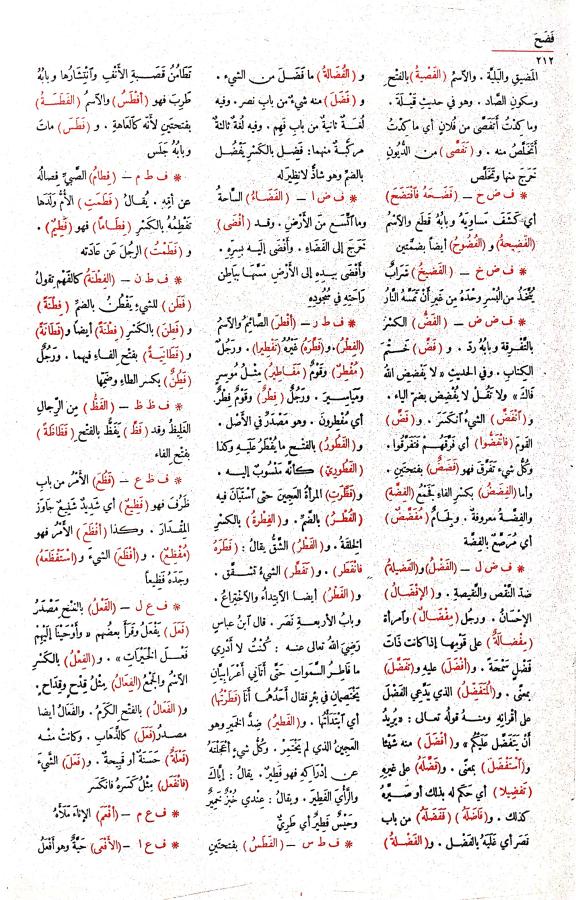 فَضَحَ
٢١٢
المَضِيق والبَلِيَّة . والاسم (الفَصْيَة) بالفتح
وسكون الصاد . وهو في حديثِ قَيْلَة .
وما كِدْتُ أَتَفَصَّى من فُلان أي ما كِدتُ
أَتخلَّص منه . و (تَفَصَّى) من الدُّيُون
خَرَج منها وتخلَّص
* ف ض ح – (فَضَحَهُ فَافْتَضَحَ)
أي كَشَفَ مَسَاوِيَهُ وبابُه قَطَع والاسْم
(الفَضِيحة) و (الفُضُوحُ) أيضاً بضمَّتين
* ف ض خ – (الفَضِيخُ) شَرَابٌ
يُتَّخَذ من البُسْرِ وَحْدَهُ مِن غير أَنْ تَمَسَّهُ النَّارُ
* ف ض ض – (الفَضُّ) الكَسْرُ
بالتَّفْرِقة وبابُه رَدّ . و (فَضَّ) خَتْمَ
الكِتَاب . وفي الحديث « لا يَفْضُضِ اللهُ
فَاكَ » ولا تَقُلْ لا يُفْضِض بضم الياء .
و (انْفَضَّ) الشيءُ انكَسَر . و (فَضَّ)
القوم (فانْفَضُّوا) أي فَرَّقَهُم فَتَفَرَّقوا .
وكُلُّ شيء تَفَرَّق فهو (فَضَضٌ) بفتحتين .
وأما (الفِضَضُ) بكسر الفاء فجَمْع (الفِضَّةِ)
والفِضَّةُ معروفةٌ . ولِجَامٌ (مُفَضَّضٌ)
أي مُرَصَّعٌ بالفِضَّة
* ف ض ل – (الفَضْلُ) و (الفَضِيلةُ)
ضدّ النَّقْص والنَّقِيصة . و (الإفْضَالُ)
الإحْسَانُ . ورجُل (مِفْضَالٌ) وامرأة
(مِفْضَالَةٌ) على قَوْمها إذا كانت ذاتَ
فَضْلٍ سَمْحَة . و (أَفْضَلَ) عليه و (تَفَضَّلَ)
بمعنًى . و (المُتَفَضِّل) الذي يَدَّعِي الفَضْلَ
على أَقْرَانِه ومنه قولُه تعالى : « يُرِيدُ
أَنْ يَتَفَضَّلَ عَلَيْكُمْ » و (أَفْضَلَ) منه شَيْئا
و (اسْتَفْضَلَ) بمعنًى . و (فَضَّلَهُ) على غيره
(تَفْضِيلا) أي حَكَمَ له بذلك أو صَيَّرَهُ
كذلك . و (فَاضَلَهُ) (فَفَضَلَهُ) من باب
نصر أي غَلَبَهُ بالفَضْل . و (الفَضْلَةُ)
و (الفُضَالَةُ) ما فَضَلَ من الشيء .
و (فَضَلَ) منه شيءٌ من باب نصر . وفيه
لُغَةٌ ثانيةٌ من باب فَهِم . وفيه لُغَةٌ ثالثةٌ
مركَّبةٌ منهما: فَضِلَ بالكَسْر يَفْضُل
بالضم وهو شاذٌّ لانظيرَ له
* ف ض ا – (الفَضَاءُ) السَّاحةُ
وما اتَّسَعَ من الأرْضِ . وقد (أَفْضَى)
خَرَجَ إلى الفَضَاء . وأَفْضَى إليه بسِرِّه .
وأَفْضَى بيده إلى الأَرْضِ مَسَّها بباطِن
رَاحَتِه في سُجُودِه
* ف ط ر – (أَفْطَرَ) الصَّائمُ والاسْم
(الفِطْرُ) و (فَطَّرَهُ) غَيْرُهُ (تَفْطِيرا) . ورجُلٌ
(مُفْطِرٌ) وقَوْمٌ (مَفَاطِيرُ) مِثْلُ مُوسِر
ومَيَاسِير . ورجُلٌ (فِطْرٌ) وقومٌ فِطْرٌ
أي مُفْطِرون . وهو مَصْدَرٌ في الأَصْل .
و (الفَطُورُ) بالفتح ما يُفْطَرُ عليه وكذا
(الفَطُورِيّ) كأنَّه مَنْسُوبٌ إليه .
و (فَطَرَتِ) المرأةُ العَجِينَ حتى استبانَ فيه
(الفُطْرُ) بالضم . و (الفِطْرةُ) بالكسر
الخِلْقة . و (الفَطْرُ) الشَّقُّ يقال : (فَطَرَهُ
فانفَطَر) . و (تَفَطَّر) الشيءُ تَشَقَّق .
و (الفَطْرُ) أيضا الابتِداءُ والاخْتِراعُ .
وبابُ الأربعة نَصَر . قال ابنُ عباس
رَضِيَ اللهُ تعالى عنه : كُنْتُ لا أَدْرِي
ما فَاطِرُ السَّمواتِ حَتَّى أَتَانِي أَعْرَابِيَّانِ
يَخْتَصِمانِ في بِئْرٍ فقال أَحَدُهُما أَنَا (فَطَرْتُها)
أي ابْتَدَأْتُها . و (الفَطِيرُ) ضِدُّ الخَمِير وهو
العَجِينُ الذي لم يَخْتَمِر . وكُلُّ شيءٍ أَعْجَلْتَهُ
عن إدْرَاكِهِ فهو فَطِيرٌ . يقال : إيَّاكَ
والرَّأْيَ الفَطِيرَ . ويقال : عِنْدِي خُبْزٌ خَمِيرٌ
وحَيْسٌ فَطِيرٌ أي طَرِيٌّ
* ف ط س – (الفَطَسُ) بفتحتين
تَطَامُنُ قَصَبةِ الأَنْفِ وانْتِشَارُها وبابُه
طَرِب فهو (أَفْطَسُ) والاسم (الفَطَسَةُ)
بفتحتين لأنّه كالعاهة . و (فَطَسَ) ماتَ
وبابُه جَلَس
* ف ط م – (فِطَامُ) الصَّبِيِّ فِصَالُه
عن أُمِّه . يُقال (فَطَمَتِ) الأُمُّ وَلَدَها
تَفْطِمُهُ بالكَسْر (فِطَاماً) فهو (فَطِيمٌ) .
و (فَطَمْتُ) الرجُلَ عن عَادَتِه
* ف ط ن – (الفِطْنَةُ) كالفَهْم تقولُ
(فَطَنَ) للشيءِ يَفْطُن بالضم (فِطْنَةً)
و (فَطِنَ) بالكسر (فِطْنَةً) أيضا و (فَطَانَةً)
و (فَطَانِيَةً) بفتح الفاء فيهما . ورَجُلٌ
(فَطُنٌ) بكسر الطاء وضَمِّها
* ف ظ ظ – (الفَظُّ) من الرِّجالِ
الغَلِيظُ وقد (فَظَّ) يَفَظّ بالفتح (فَظَاظَةً)
بفتح الفاء
* ف ظ ع – (فَظُعَ) الأَمْرُ من باب
ظَرُف فهو (فَظِيعٌ) أي شَدِيدٌ شَنِيعٌ جاوَزَ
المِقْدارَ . وكذا (أَفْظَعَ) الأَمْرُ فهو
(مُفْظِعٌ) . و (أَفْظَعَ) الشيءَ و (اسْتَفْظَعَهُ)
وَجَدَهُ فَظِيعاً
* ف ع ل – (الفَعْلُ) بالفتح مَصْدَرُ
(فَعَلَ) يَفْعَلُ وقرأ بعضُهم « وأَوْحَيْنَا إلَيْهِمْ
فَعْلَ الخَيْرَاتِ » . و (الفِعْلُ) بالكَسْر
الاسمُ والجَمْعُ (الفِعَالُ) مِثْلُ قِدْحٍ وقِدَاحٍ .
و (الفَعَالُ) بالفتح الكَرَمُ . والفَعَالُ أيضا
مصدرُ (فَعَلَ) كالذَّهاب . وكانت منه
(فَعْلَةٌ) حَسَنَةٌ أو قَبِيحة . و (فَعَلَ) الشَّيءَ
(فانْفَعَلَ) مِثْلُ كَسَرَهُ فانكَسَر
* ف ع م – (أَفْعَمَ) الإِنَاءَ مَلَأَهُ
* ف ع ا – (الأَفْعَى) حَيَّةٌ وهو أَفْعَلُ